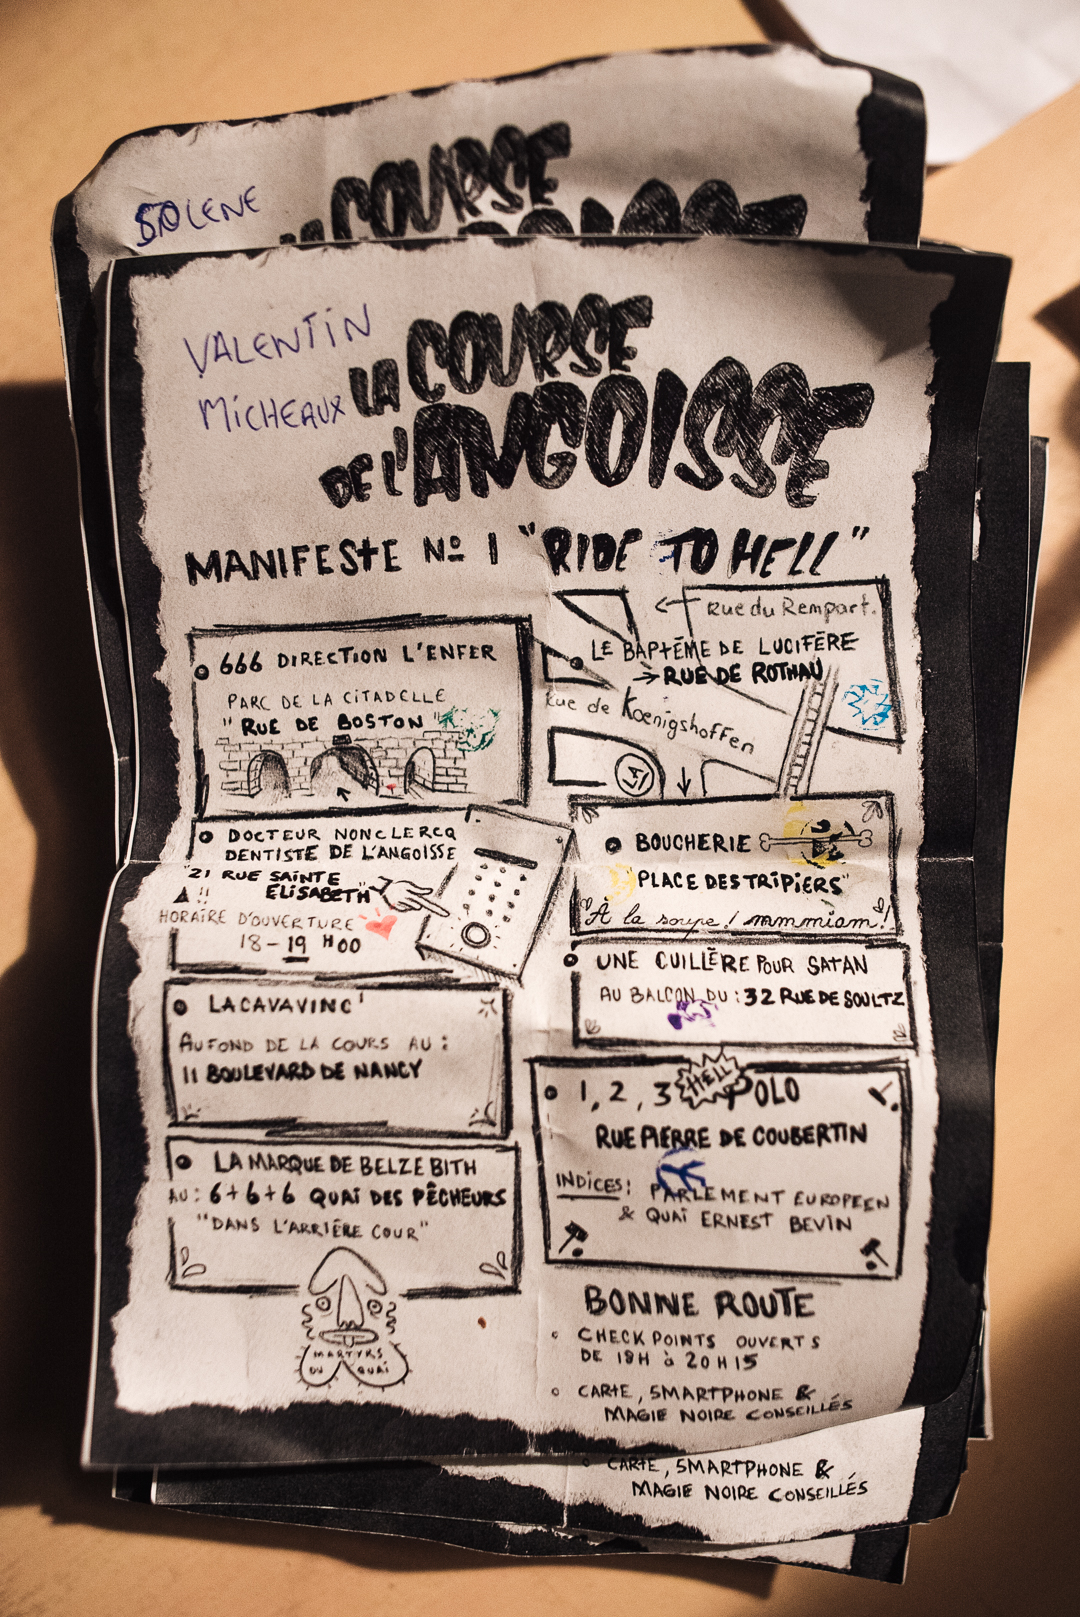 SOLENE
LA COURSE
VALENTIN
MICHEAUX
LA COURSE
DE L'ANGOISSE
MANIFESTE Nº 1 "RIDE TO HELL"
666 DIRECTION L'ENFER
PARC DE LA CITADELLE
"RUE DE BOSTON"
← Rue du Rempart.
LE BAPTÉME DE LUCIFÈRE
→ RUE DE ROTHAU
Rue de Koenigshoffen
DOCTEUR NONCLERCQ
DENTISTE DE L'ANGOISSE
"21 RUE SAINTE
ELISABETH"
!!
HORAIRE D'OUVERTURE
18-19 H00
BOUCHERIE
"PLACE DES TRIPIERS"
A la soupe! mmmmiam!
UNE CUILLÈRE POUR SATAN
AU BALCON DU : 32 RUE DE SOULTZ
LACAVAVINC'
AU FOND DE LA COURS AU :
11 BOULEVARD DE NANCY
1, 2, 3 HELL POLO
RUE PIERRE DE COUBERTIN
INDICES : PARLEMENT EUROPEEN
& QUAI ERNEST BEVIN
LA MARQUE DE BELZEBITH
AU : 6+6+6 QUAI DES PÊCHEURS
"DANS L'ARRIÈRE COUR"
MARTYRS
DU QUAI
BONNE ROUTE
CHECK POINTS OUVERTS
DE 18H à 20H15
CARTE, SMARTPHONE &
MAGIE NOIRE CONSEILLÉS
CARTE, SMARTPHONE &
MAGIE NOIRE CONSEILLÉS